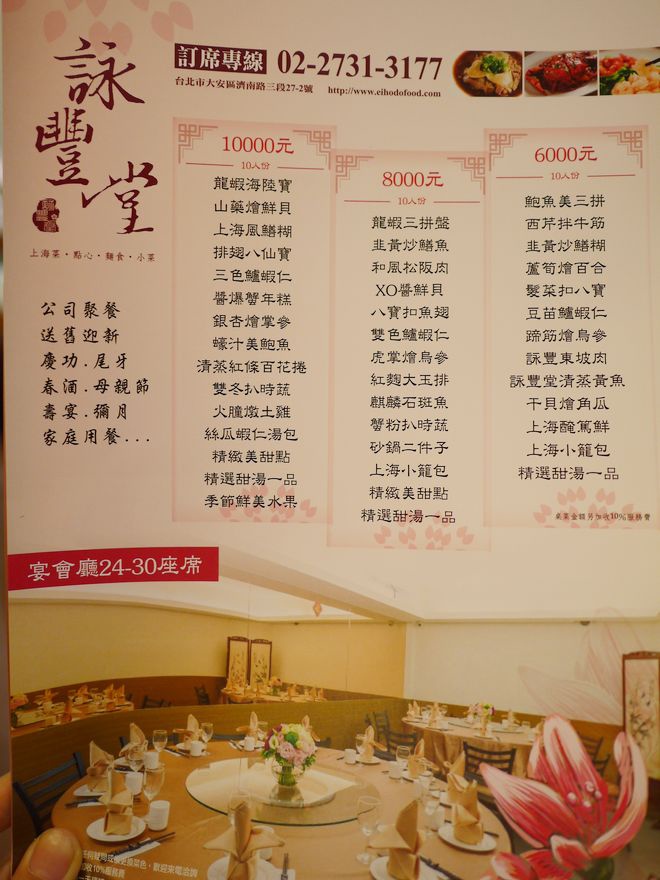 詠豐堂
上海菜·點心·麵食·小菜
訂席專線 02-2731-3177
台北市大安區濟南路三段27-2號 http://www.eihodofood.com
公司聚餐
送舊迎新
慶功.尾牙
春酒.母親節
壽宴.彌月
家庭用餐...
10000元
10人份
龍蝦海陸寶
山藥燴鮮貝
上海風鱔糊
排翅八仙寶
三色鱸蝦仁
醬爆蟹年糕
銀杏燴掌參
蠔汁美鮑魚
清蒸紅條百花捲
雙冬扒時蔬
火腫燉土雞
絲瓜蝦仁湯包
精緻美甜點
精選甜湯一品
季節鮮美水果
8000元
10人份
龍蝦三拼盤
韭黃炒鱔魚
和風松阪肉
XO醬鮮貝
八寶扣魚翅
雙色鱸蝦仁
虎掌燴烏參
紅麴大玉排
麒麟石斑魚
蟹粉扒時蔬
砂鍋二件子
上海小籠包
精緻美甜點
精選甜湯一品
6000元
10人份
鮑魚美三拼
西芹拌牛筋
韭黃炒鱔糊
蘆筍燴百合
髮菜扣八寶
豆苗鱸蝦仁
蹄筋燴烏參
詠豐東坡肉
詠豐堂清蒸黃魚
干貝燴角瓜
上海醃篤鮮
上海小籠包
精選甜湯一品
桌菜金額另加收10%服務費
宴會廳24-30座席
更換菜色，歡迎來電洽詢
收10%服務費